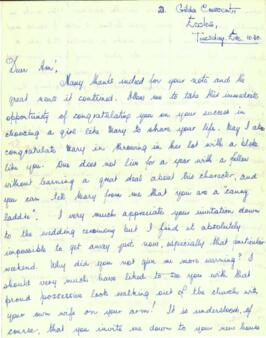 Crescent,
Eccles,
Tuesday, Dec 10.
Many thanks indeed for your note and the
great news it contained. Allow me to take this immediate
opportunity of congratulating you on your success in
choosing a girl like Mary to share your life. May I also
congratulate Mary in throwing in her lot with a bloke
like you. One does not live for a year with a fellow
without learning a great deal about his character, and
you can tell Mary from me that you are a "canny
laddie". I very much appreciate your invitation down
to the wedding ceremony but I find it absolutely
impossible to get away just now, especially that particular
weekend. Why did you not give me more warning? I
should very much have liked to see you with that
proud possessive look walking out of the church with
your own wife on your arm! It is understood, of
course, that you invite me down to your new house